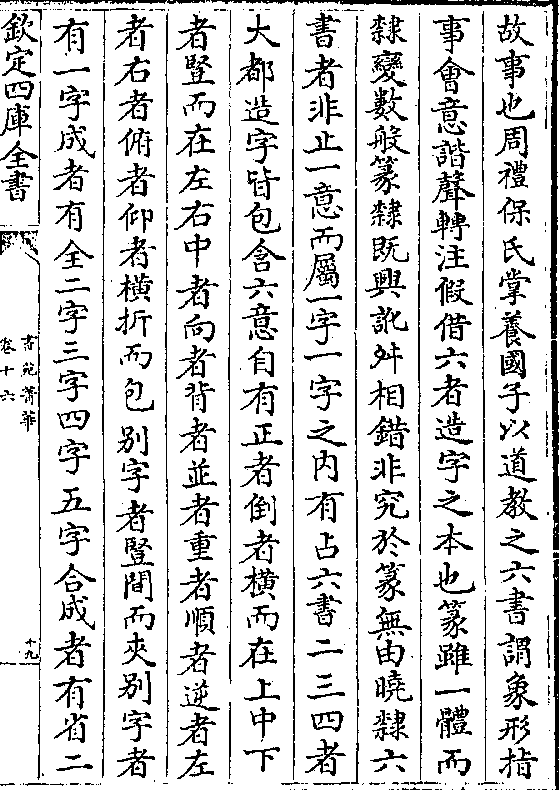 故事也周禮保氏掌養國子以道教之六書謂象形指
事會意諧聲轉注假借六者造字之本也篆雖一體而
隸變數般篆隸既興訛舛相錯非究於篆無由曉隸六
書者非止一意而屬一字一字之内有占六書二三四者
大都造字皆包含六意自有正者倒者橫而在上中下
者豎而在左右中者向者背者並者重者順者逆者左
者右者俯者仰者橫折而包别字者豎間而夾别字者
有一字成者有全二字三字四字五字合成者有省二
欽定四庫全書
書苑菁華
卷十六
十九